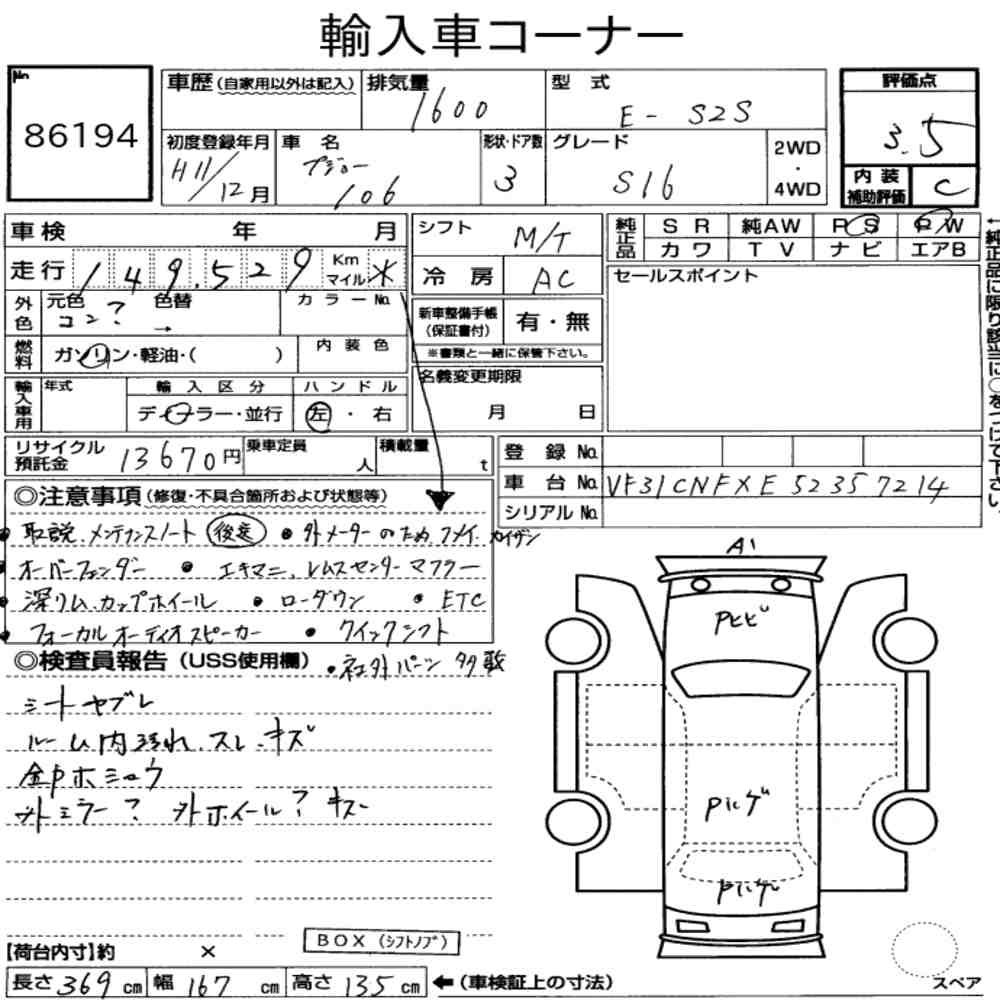 輸入車コーナー
No.
86194
車歴(自家用以外は記入)
排気量
1600
型 式
E- S2S
評価点
3.5
初度登録年月
H11/12月
車 名
プジョー
106
形状・ドア数
3
グレード
S16
2WD
・
4WD
内 装
補助評価
C
車検 年 月
シフト
M/T
純正品
S R 純AW P S P W
カワ T V ナビ エアB
←純正品に限り該当に○をつけて下さい。
走行 149,529 Km マイル *
冷 房
AC
セールスポイント
外色
元色
コン?
色替
→
カラーNo.
新車整備手帳
(保証書付)
有・無
※書類と一緒に保管下さい。
燃料
ガソリン・軽油・( )
内 装 色
名義変更期限
月 日
輸入車用
年式
輸 入 区 分
ディーラー・並行
ハ ン ド ル
左・右
リサイクル
預託金
13670円
乗車定員
人
積載量
t
登 録 No.
車 台 No. VF31CNFXE52357214
シリアル No.
◎注意事項(修復・不具合箇所および状態等)
・取説、メンテナンスノート 後送 ・外メーターのため、フメイ、カイザン
・オーバーフェンダー ・エキマニ、レムスセンターマフラー
・深リム、カップホイール ・ローダウン ・ETC
・フォーカルオーディオスピーカー ・クイックシフト
◎検査員報告(USS使用欄) ・社外パーツ多数
シートヤブレ
ルーム内汚れ、スレ・キズ
外ミラー? 外ホイール? キズ
A1
Pヒビ
Pハゲ
Pハゲ
BOX(シフトノブ)
【荷台内寸】約 ×
長さ 369 cm 幅 167 cm 高さ 135 cm ←(車検証上の寸法)
スペア